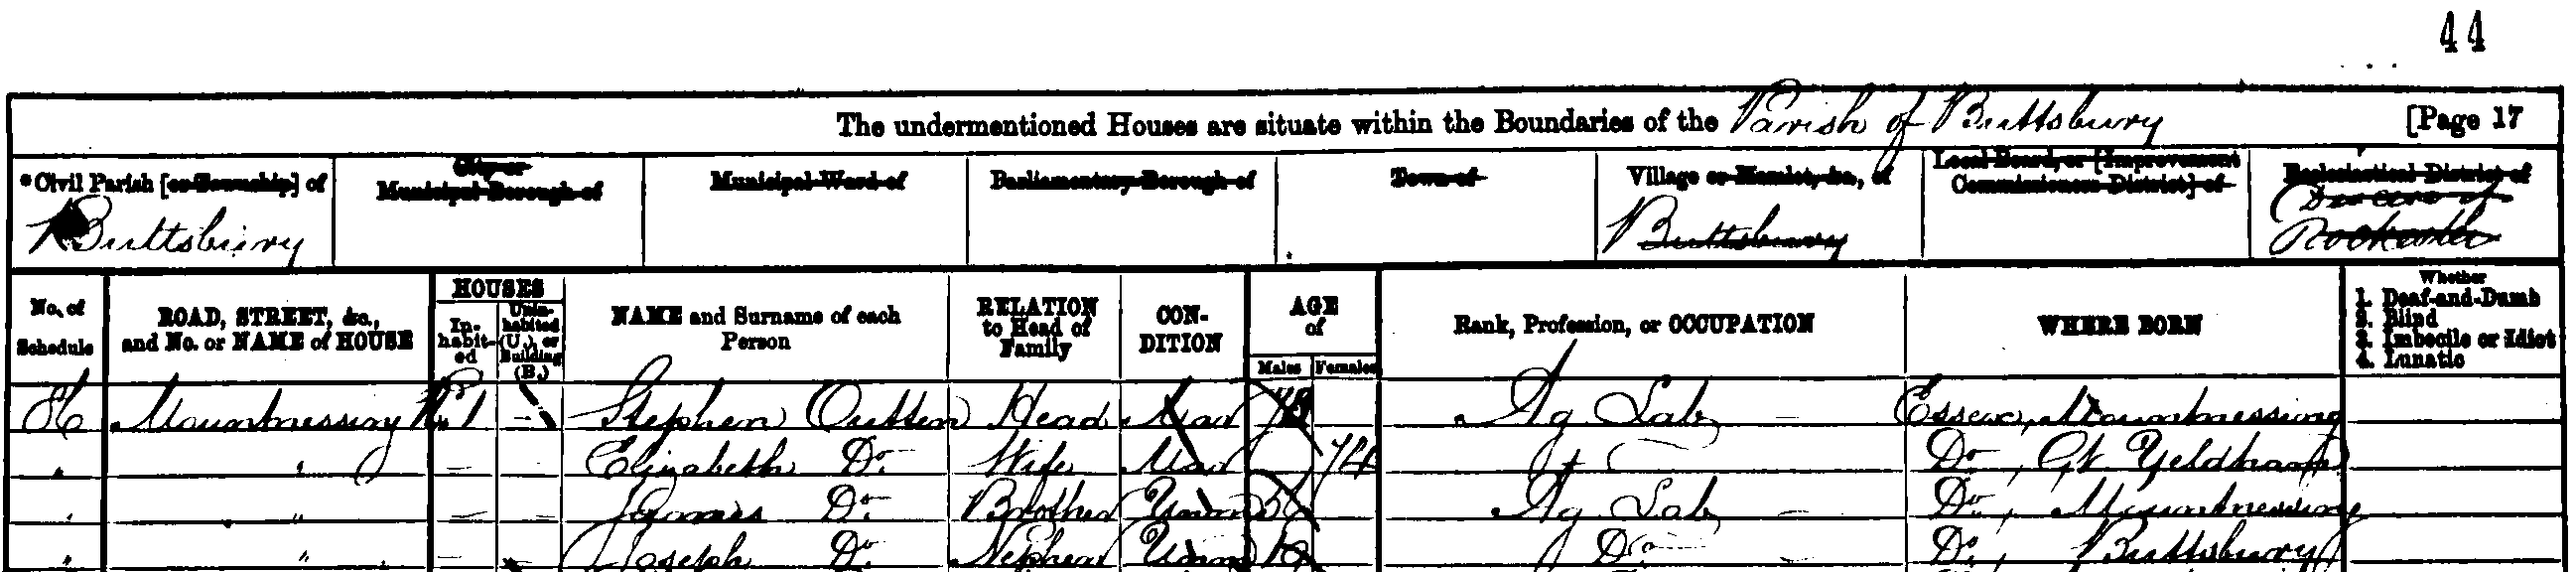 44
The undermentioned Houses are situate within the Boundaries of the Parish of Buttsbury [Page 17
*Civil Parish [or Township] of City or Municipal Borough of Municipal Ward of Parliamentary Borough of Town of Village or Hamlet, &c., of Local Board, or [Improvement Commissioners District] of Ecclesiastical District of
Buttsbury Buttsbury Diocese of Rochester
No. of Schedule ROAD, STREET, &c., and No. or NAME of HOUSE HOUSES Inhabited Uninhabited (U.), or Building (B.) NAME and Surname of each Person RELATION to Head of Family CONDITION AGE of Males Females Rank, Profession, or OCCUPATION WHERE BORN Whether 1. Deaf-and-Dumb 2. Blind 3. Imbecile or Idiot 4. Lunatic
Mountnessing 1 - Stephen Outten Head Mar Ag Lab - Essex, Mountnessing
" " - - Elizabeth Do. Wife Mar 74 Do., Gt. Yeldham
" " - - James Do. Brother Unm Ag Lab - Do., Mountnessing
" " - Joseph Do. Nephew Unm 19 Do. - Do., Buttsbury